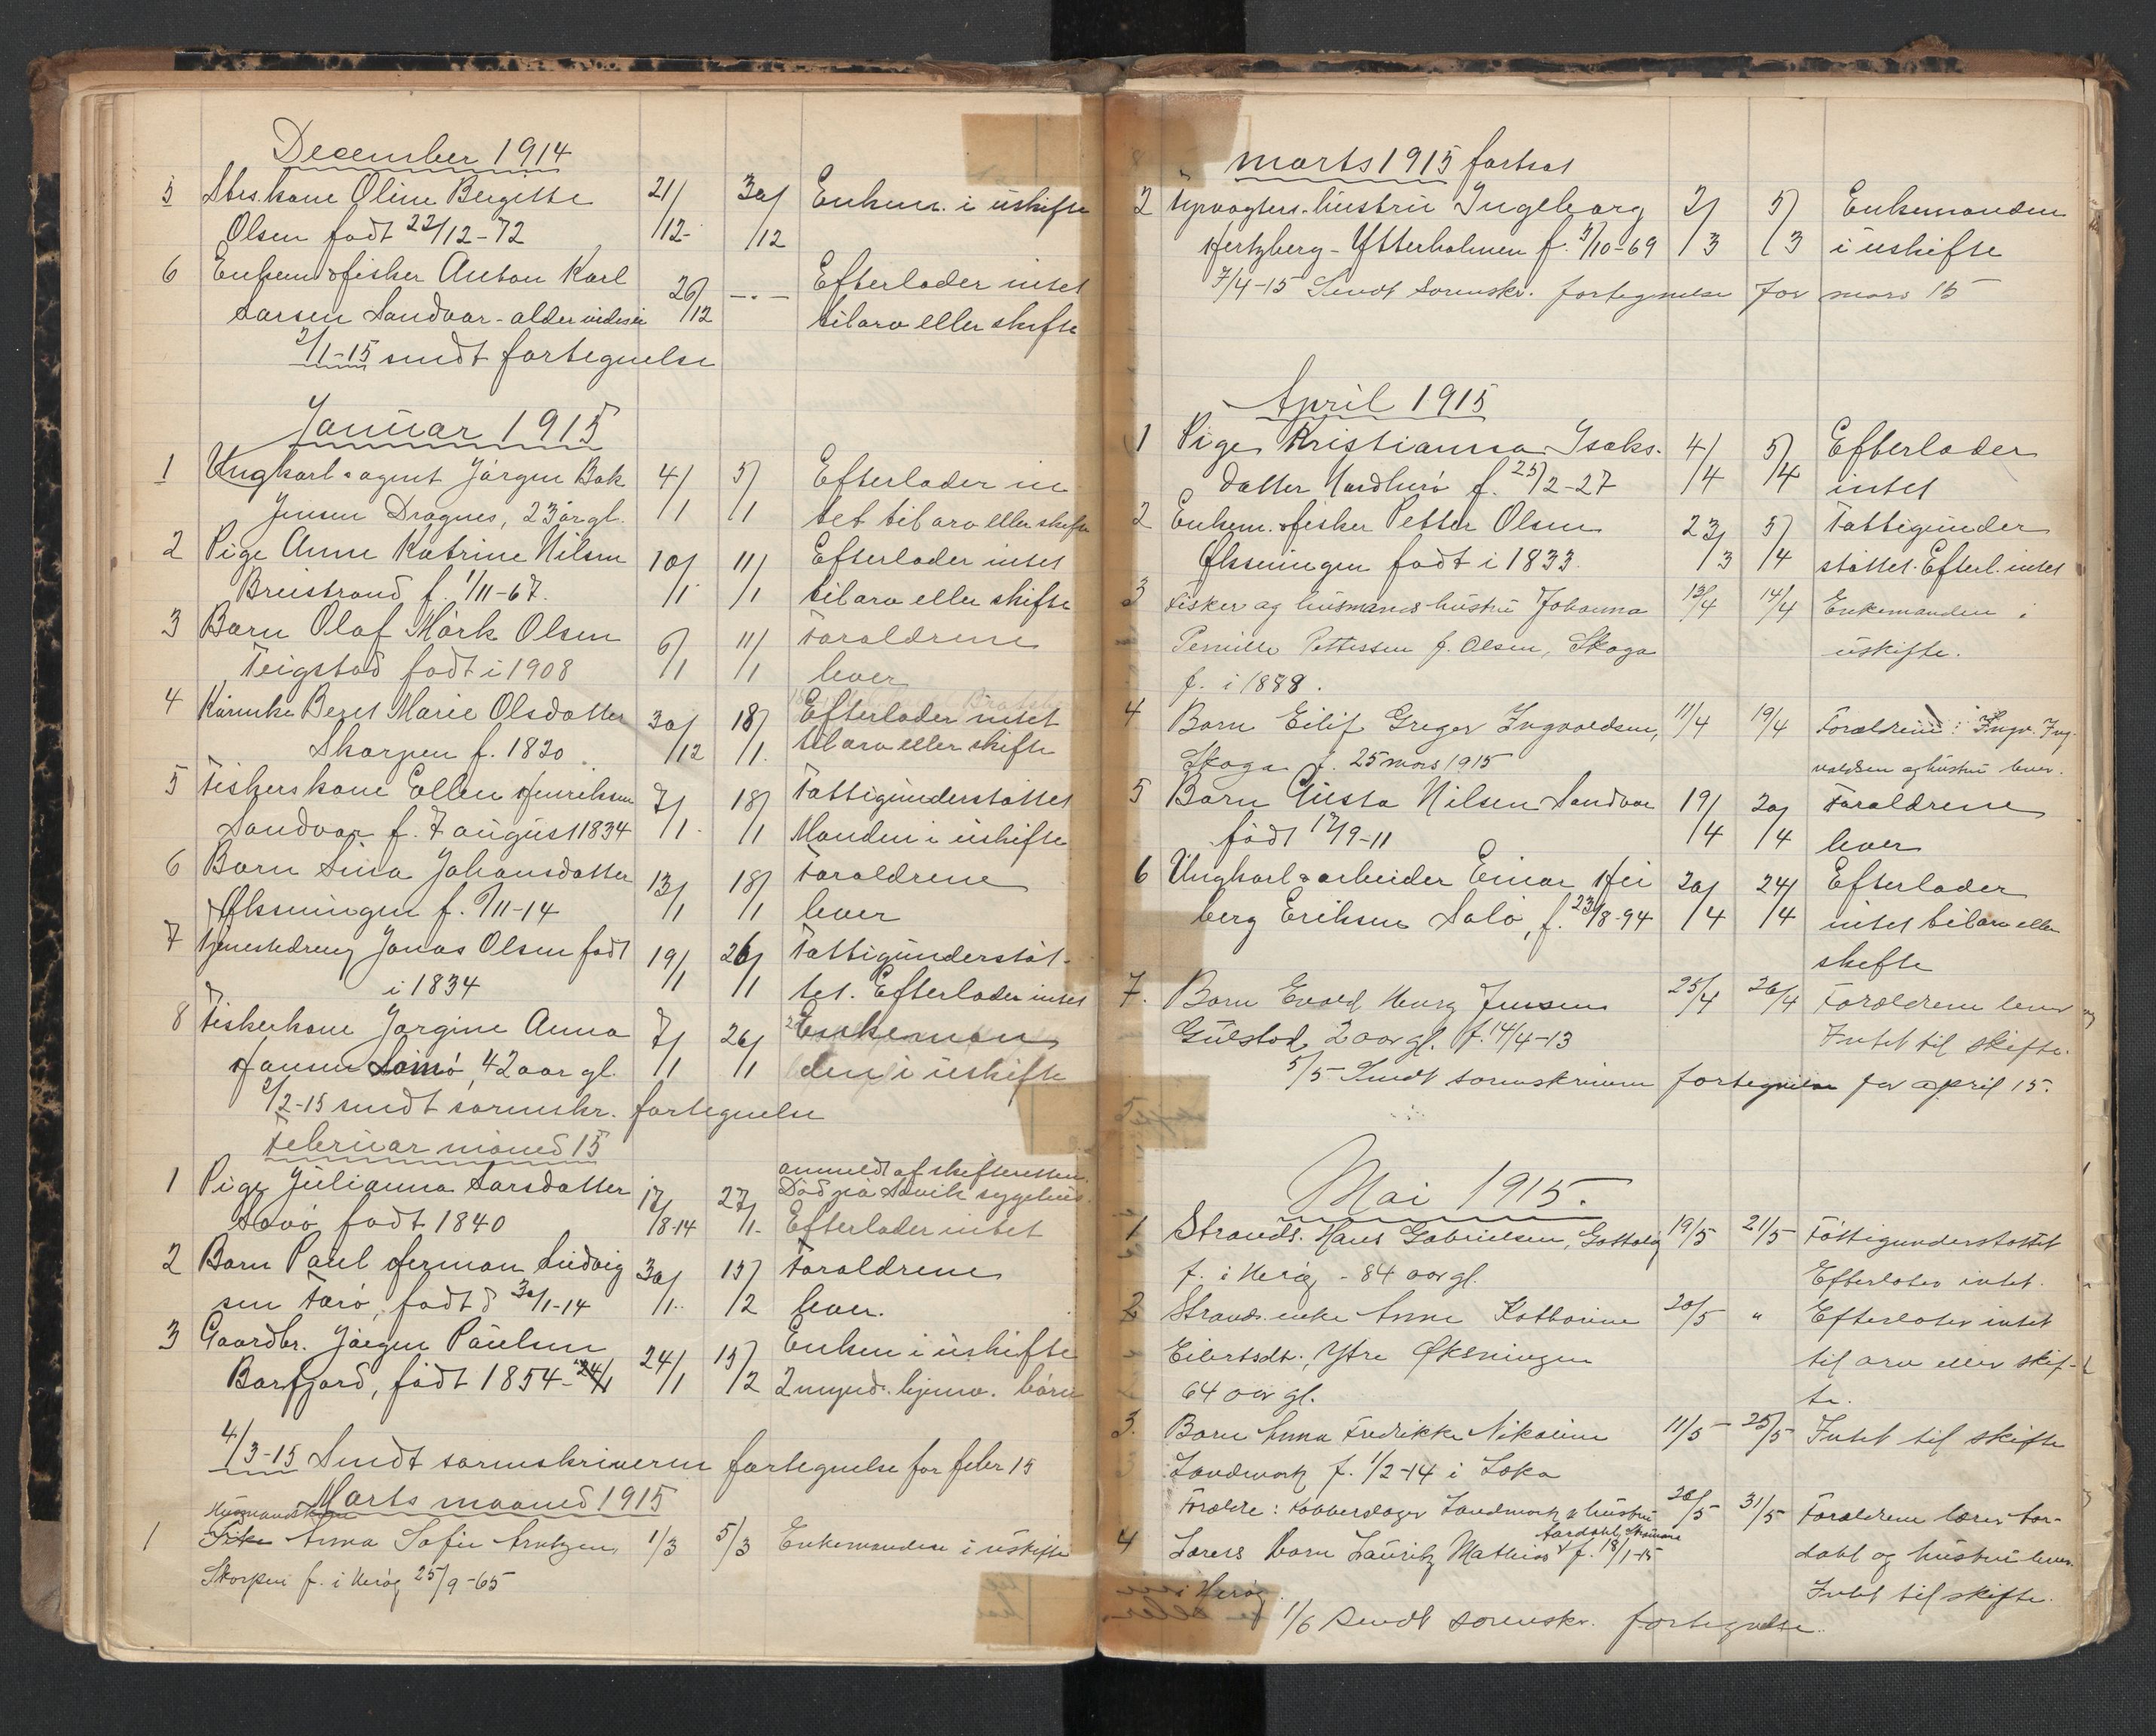 December 1914
5 Strs.kone Oline Bergitte 21/ 30/ Enkem. i uskifte
Olsen født 22/12-72 /12- /12
6 Enkem & fisker Anton Karl 26/ -"- Efterlader intet
Larsen Sandvær - alder vides ei /12 til arv eller skifte
2/1-15 sendt fortegnelse
Januar 1915
1 Ungkarl & agent Jørgen Bak 4/ 5/ Efterlader in
Jensen Dragnes, 23 år gl. /1 /1 tet til arv eller skifte
2 Pige Anne Katrine Nilsen 10/ 11/ Efterlader intet
Breistrand f. 1/11-67. /1 /1 til arv eller skifte
3 Barn Olaf Mørk Olsen 6/ 11/ Forældrene
Teigstad født i 1908 /1 /1 lever
4 Beret Marie Olsdatter 30/ 18/ Efterlader intet
Skarpen f. 1820 /12 /1. til arv eller skifte
5 Fiskerskone Ellen Henriksen 7/ 18/ Fattigunderstøttet
Sandvær f. 7 august 1834 /1. /1 Manden i uskifte
6 Barn Sina Johansdatter 13/ 18/ Forældrene
Øksningen f. 9/11-14 /1 /1 lever
7 Tjenestedreng Jonas Olsen født 19/ 26/ Fattigunderstøt-
i 1834 /1 /1 tet. Efterlader intet
8 Fiskerkone Jørgine Anna 7/ 26/ Enkeman
Hansen Sømø, 42 aar gl. /1 /1 den i uskifte
2/2-15 sendt sorenskr. fortegnelse
Februar måned 15
anmeldt af skifteretten.
1 Pige Julianna Larsdatter 17/ 27/ Død på Sandvik sygehus.
født 1840 /8-14 /1. Efterlader intet
2 Barn Paul Herman Ludvig 30/ 15/ Forældrene
sen Færø, født d 30/1-14 /1. /2 lever.
3 Gaardbr. Jørgen Paulsen 24/ 15/ Enken i uskifte
Barfjord, født 1854 - 24/1 /1 /2 2 mynd. hjemv. børn
4/3-15 Sendt sorenskriveren fortegnelse for febr 15
Marts maaned 1915
Husmandskone
1 Anna Sofie Arntzen 1/3 5/3 Enkemanden i uskifte
Skorpen f. i Herøy 25/9-65
marts 1915 fortsat
2 Fyrvogters. hustru Ingeborg 2/ 5/ Enkemanden
Hertzberg - Ytterholmen f. 5/10-69 /3 /3 i uskifte
7/4-15 Sendt Sorenskr. fortegnelse for mars 15
April 1915
1 Pige Kristianna Isaks- 4/ 5/ Efterlader
datter Nordherø f. 25/2-27 /4 /4 intet
2 Enkem. & fisker Petter Olsen 23/ 5/ Fattigunder
Øksningen født i 1833 /3 /4 støttet. Efterl. intet
3 Fisker og husmands hustru Johanna 13/4 14/4 Enkemanden i
Pernille Pettersen f. Olsen, Skaga uskifte.
f. i 1888.
4 Barn Eilif Greger Ingvaldsen, 11/4 19/4 Forældrene: Ingv. Ing-
Skaga f. 25 mars 1915 valdsen og hustru lever.
5 Barn Gusta Nilsen Sandvær 19/ 20/ Forældrene
født 17/9-11 /4 /4 lever
6 Ungkarl & arbeider Einar Hei 20/ 24/ Efterlader
berg Eriksen Salø, f. 23/8-94 /4 /4 intet til arv eller
skifte
7. Barn Evald Henry Jensen 25/4 26/4 Forældrene lever
Gulstad 2 aar gl. f. 14/4-13 Intet til skifte.
5/5 Sendt sorenskriveren fortegnelse for april 15.
Mai 1915.
1 Strands. Hans Gabrielsen, 19/5 21/5 Fattigunderstøttet
f. i Herøy - 84 aar gl. Efterlater intet.
2 Strands.enke Anne Katharine 20/5 " Efterlater intet
Eilertsdt., Ytre Øksningen til arv eller skif-
64 aar gl. te.
3. Barn Anna Fredrikke Nikoline 11/5 - 25/5 Intet til skifte
Landmark f. 1/2-14 i Loka
Forældre: Kobberslager Landmark & hustru 20/5 31/5 Forældrene lærer Aar-
Aardahl
4 Lærers barn Lauritz Mathias f. 18/1-15 dahl og hustru lever.
i Herøy. Intet til skifte.
1/6 sendt sorenskr. fortegnelse.